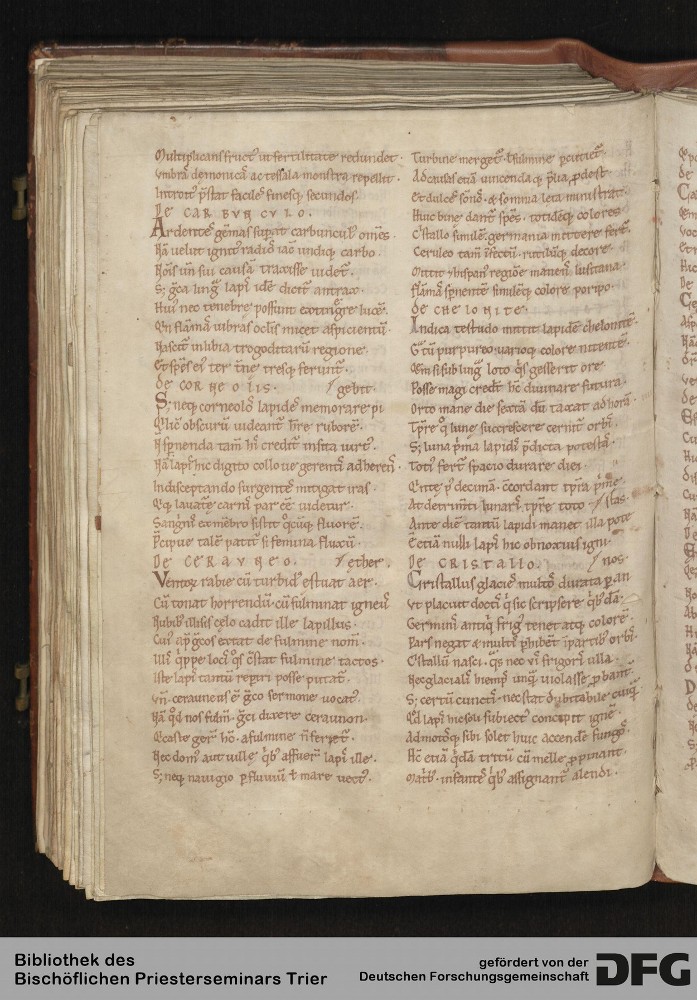 Multiplicans fruct᷒ ut fertilitate redundet.
Vmbrā demonicā ac tessala monstra repellit.
Introit᷒ p̄stat faciles finesq; secundos.
DE CARBVNCVLO.
Ardentes gēmas supat carbuncul᷒ om̄es.
Nā velut ignit᷒ radios iac̄ undiq; carbo.
Nōīs un̄ sui causā traxisse uidet᷒.
S; g̊ca lingua lapis idē dicit᷒ antrax.
Hui᷒ nec tenebre possunt extinguere lucē.
Qn̄ flāmā uibrās oclis micet aspicientū.
Nascit᷒ in libia trogoditarū regione.
Et spēs ei᷒ ter t̄ne tresq; ferunt᷒.
DE CORNEOLIS. gebit.
S; neq; corneolū lapidē memorare pi
Qui licet obscurū uideat᷒ habere ruborē.
N spnenda tam̄ huic credit᷒ insita uirt᷒.
Nā lapis hic digito collo ue gerentis adherens.
In disceptando surgentes mitigat iras.
Qq; lauatē carnis par eē uidetur.
Sangn̄is ex mēbro sistit q̊cūq; fluorē.
Precipue talē patit᷒ si femina fluxū.
DE CERAVNEO. ether.
Ventoꝝ rabie cū turbid᷒ estuat aer.
Cū tonat horrendū. cū fulminat igneus
Nubib᷒ illisis celo cadit ille lapillus.
Cui᷒ ap̄ g̊cos extat de fulmine nom̄.
Illis q̊ppe locis q̊s cōstat fulmine tactos.
Iste lapis tantū repiri posse putat᷒.
Vn̄ cerauneus ē g̊co sermone uocat᷒.
Nā q̊d nos fulm̄. g̊ci dixere ceraunon.
Qi caste gerit hc̄. a fulmine n̄ feriet᷒.
Nec dom᷒ aut uille q̊b᷒ affuerit lapis ille.
S; neq; nauigio p fluuiū ł mare uect᷒.
Turbine merget᷒. ł fulmine pcutiet᷒.
Ad causas etiā uincendaq; p̄lia p̱dest.
Et dulces sōnos. & sōnnia leta ministrat.
Huic bine dant᷒ spēs. totidēq; colores.
C᷒stallo similē. germania mittere fert᷒.
Ceruleo tam̄ īfectū. rutiloq; decore.
Mittit & hispanis regiōe manens lusitana.
Flāmas spnentē similēq; colore piropo.
DE CHELONITE.
Indica testudo mittit lapidē chelonitē.
G᷒tū purpureo uarioq; colore nitentē.
Quē si sub lingua loto q̊s gesserit ore.
Posse magi credūt hc̄ diuinare futura.
Orto mane die sextā dū taxat ad horā.
Tp̄re q̊ luna succrescere cernit᷒ orbis.
S; luna p̄ma lapidis p̄dicta potestas.
Toti᷒ fert᷒ spacio durare diei.
Quīte p᷒ decimā. cōcordant tp̄ra p̄me.
At detrim̄ti lunaris tp̄re toto stas.
Ante diē tantū lapidi manet illa pote
E etiā nulli lapis hic obnoxius igni.
DE CRISTALLO. nos.
Cristallus glacies multos durata p an
Vt placuit doctis q̊ sic scripsere q̊bdā.
Germinis antiq̊ frigus tenet atq; colorē.
Pars negat & multis phibet̄ ī partib᷒ orbis
C᷒stallū nasci. q̊s nec uis frigoris ulla
Nec glacialis hiemps unq̄ uiolasse p̱bant᷒.
S; certū cunctis. nec stat dubitabile cuiq̄.
Qd lapis hic solis subiectus concipit ignē.
Admotosq; sibi solet huic accendē fungos.
Hc̄ etiā q̊dā tritū cū melle p̱pinant.
Matrib᷒ infantes q̊b᷒ assignant᷒ alendi.
Bibliothek des
Bischöflichen Priesterseminars Trier
gefördert von der
Deutschen Forschungsgemeinschaft
DFG